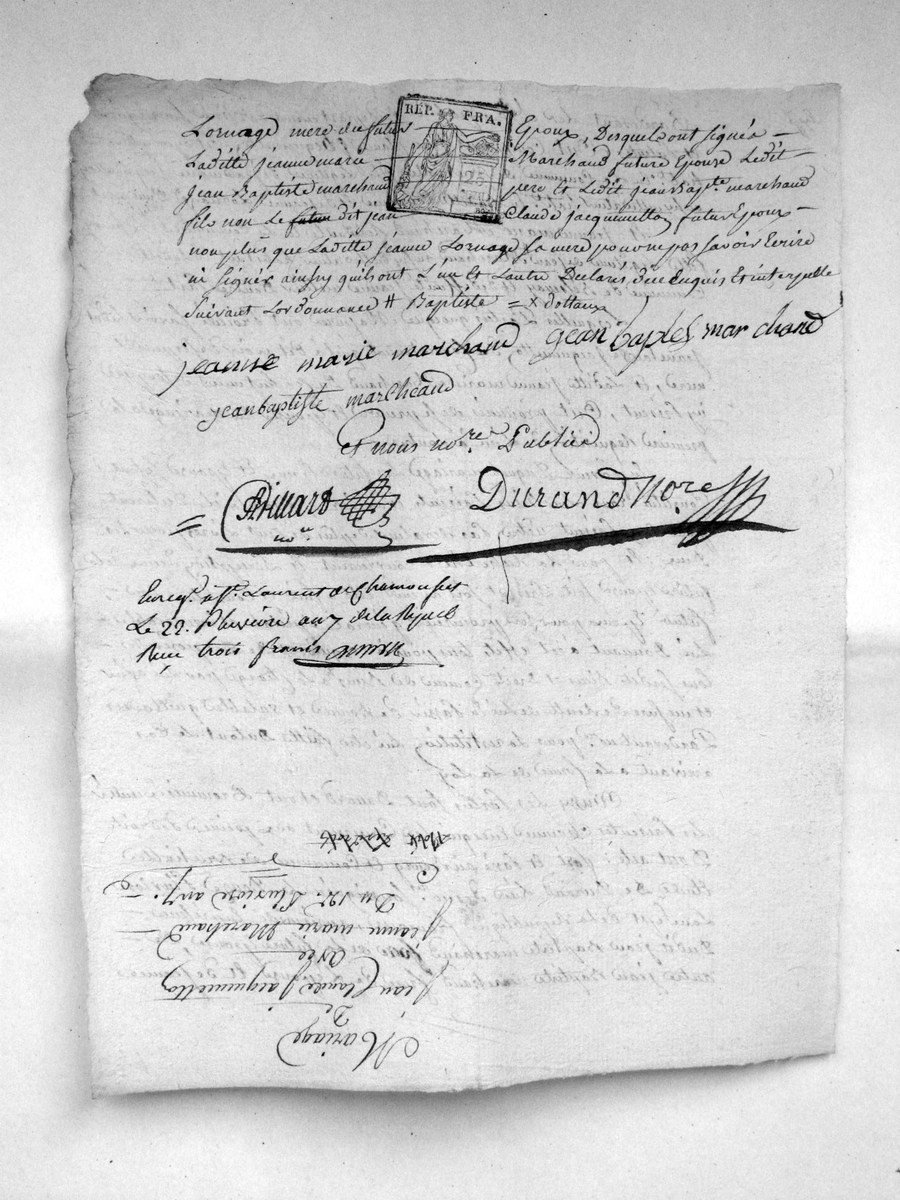 Lornage mere du futur Epoux, Desquels ont signés
Laditte jeanne marie Marchand future Epouse Ledit
jean Baptiste marchand pere Et Ledit jean Bapte marchand
fils non Le futur dit jean Claude jacquemetton futur Epoux
non plus que Laditte jeanne Lornage sa mere pour ne pas savoir Ecrire
ni signer ainsy quils ont L'un Et Lautre Declarés Enquis Et interpellé
Suivant Lordonnance # Baptiste = x
RÉP. FRA.
25
jeanne marie marchand jean baptes marchand
jeanbaptiste marcheand
Et nous nore Public
nore
Durand Nore
Enregé a St. Laurent de Chamousset
Le 22. Pluviôse an 7 de la Repub
Reçu trois francs
Mariage
De
Jean Claude Jacquemetton
avec
Jeanne marie Marchand
Du 12e. Pluviose an 7e